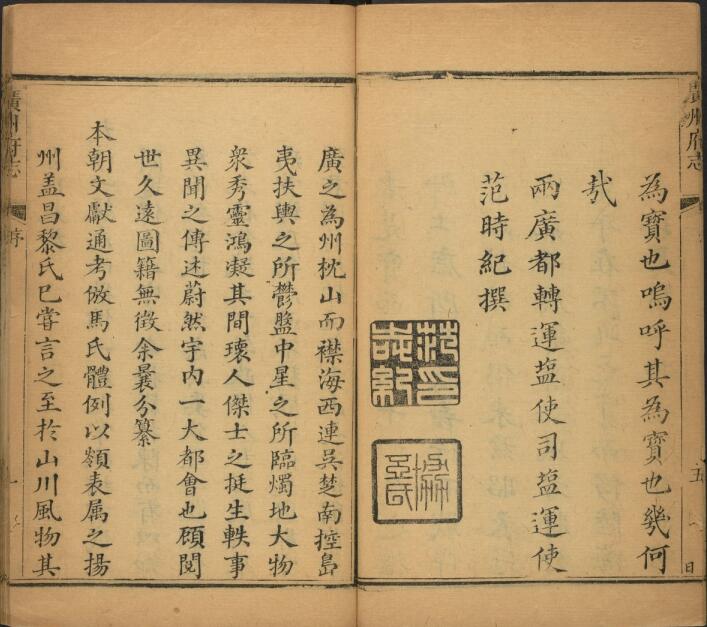 為寶也嗚呼其為寶也幾何
㢤
兩廣都轉運塩使司塩運使
范時紀撰
范印
時紀
廣州府志
五
廣之為州枕山而襟海西連吳楚南控島
夷扶輿之所鬱盤中星之所臨燭地大物
衆秀靈鴻凝其間瓌人傑士之挺生軼事
異聞之傳述蔚然宇内一大都會也顧閱
世久遠圖籍無徵余曩分纂
本朝文獻通考倣馬氏體例以嶺表属之揚
州盖昌黎氏已嘗言之至於山川風物其
廣州府志
序
一